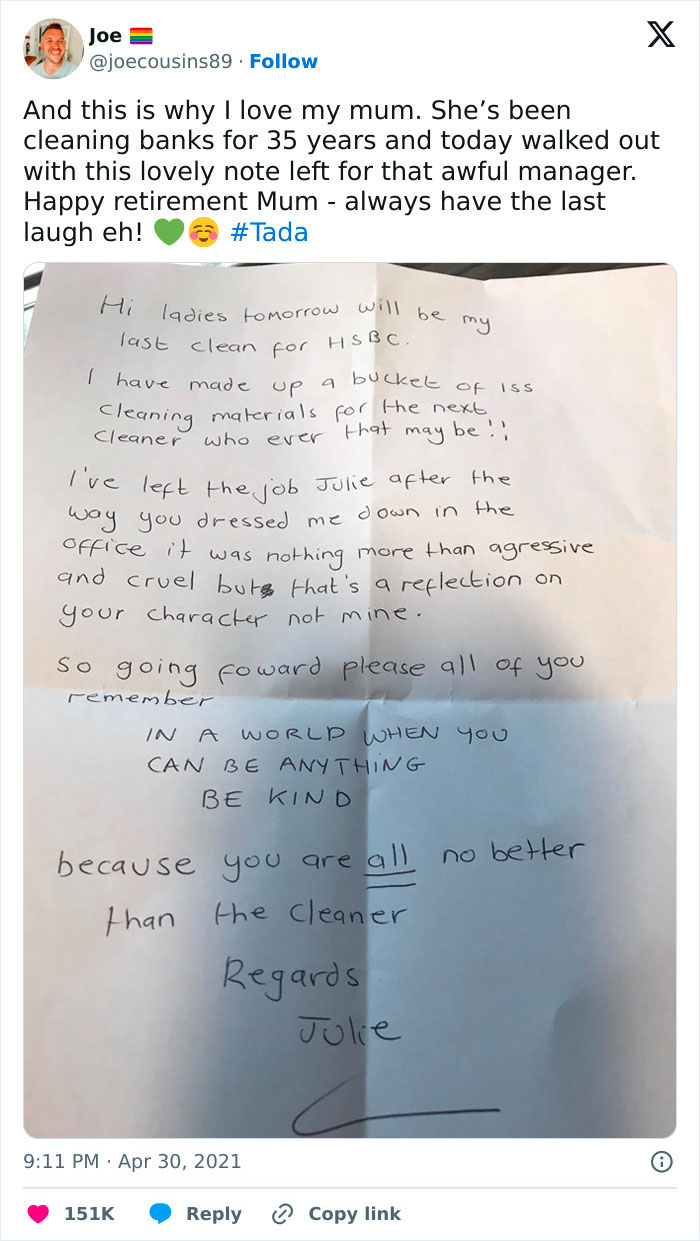 Joe 🏳️‍🌈
@joecousins89 · Follow
And this is why I love my mum. She’s been
cleaning banks for 35 years and today walked out
with this lovely note left for that awful manager.
Happy retirement Mum - always have the last
laugh eh! 💚☺️ #Tada
Hi ladies tomorrow will be my
last clean for HSBC.
I have made up a bucket of ISS
cleaning materials for the next
cleaner who ever that may be!!
I've left the job Julie after the
way you dressed me down in the
office it was nothing more than agressive
and cruel but that's a reflection on
your character not mine.
So going foward please all of you
remember
IN A WORLD WHEN YOU
CAN BE ANYTHING
BE KIND
because you are all no better
than the cleaner
Regards
Julie
9:11 PM · Apr 30, 2021
151K Reply Copy link